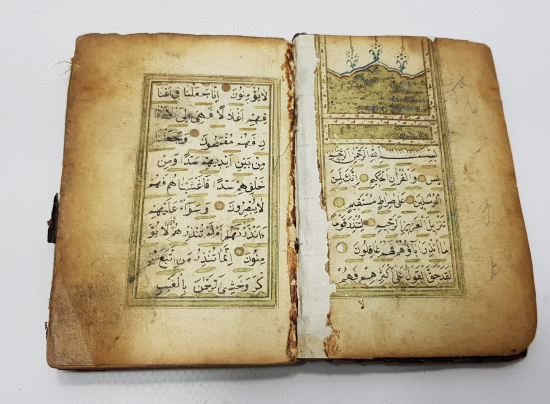 بِسْمِ اللهِ الرَّحْمٰنِ الرَّحِيمِ
يٰسٓ وَالْقُرْاٰنِ الْحَكِيمِ اِنَّكَ لَمِنَ
الْمُرْسَلِينَ عَلٰى صِرَاطٍ مُسْتَقِيمٍ
تَنْزِيلَ الْعَزِيزِ الرَّحِيمِ لِتُنْذِرَ قَوْمًا
مَا اُنْذِرَ اٰبَاؤُهُمْ فَهُمْ غَافِلُونَ
لَقَدْ حَقَّ الْقَوْلُ عَلٰى اَكْثَرِهِمْ فَهُمْ
لَا يُؤْمِنُونَ اِنَّا جَعَلْنَا فِى اَعْنَا
قِهِمْ اَغْلَالًا فَهِىَ اِلَى الْاَذْقَا
نِ فَهُمْ مُقْمَحُونَ وَجَعَلْنَا
مِنْ بَيْنِ اَيْدِيهِمْ سَدًّا وَمِنْ
خَلْفِهِمْ سَدًّا فَاَغْشَيْنَاهُمْ فَهُمْ
لَا يُبْصِرُونَ وَسَوَاءٌ عَلَيْهِمْ
ءَاَنْذَرْتَهُمْ اَمْ لَمْ تُنْذِرْهُمْ لَا يُؤْ
مِنُونَ اِنَّمَا تُنْذِرُ مَنِ اتَّبَعَ الذِّ
كْرَ وَخَشِىَ الرَّحْمٰنَ بِالْغَيْبِ